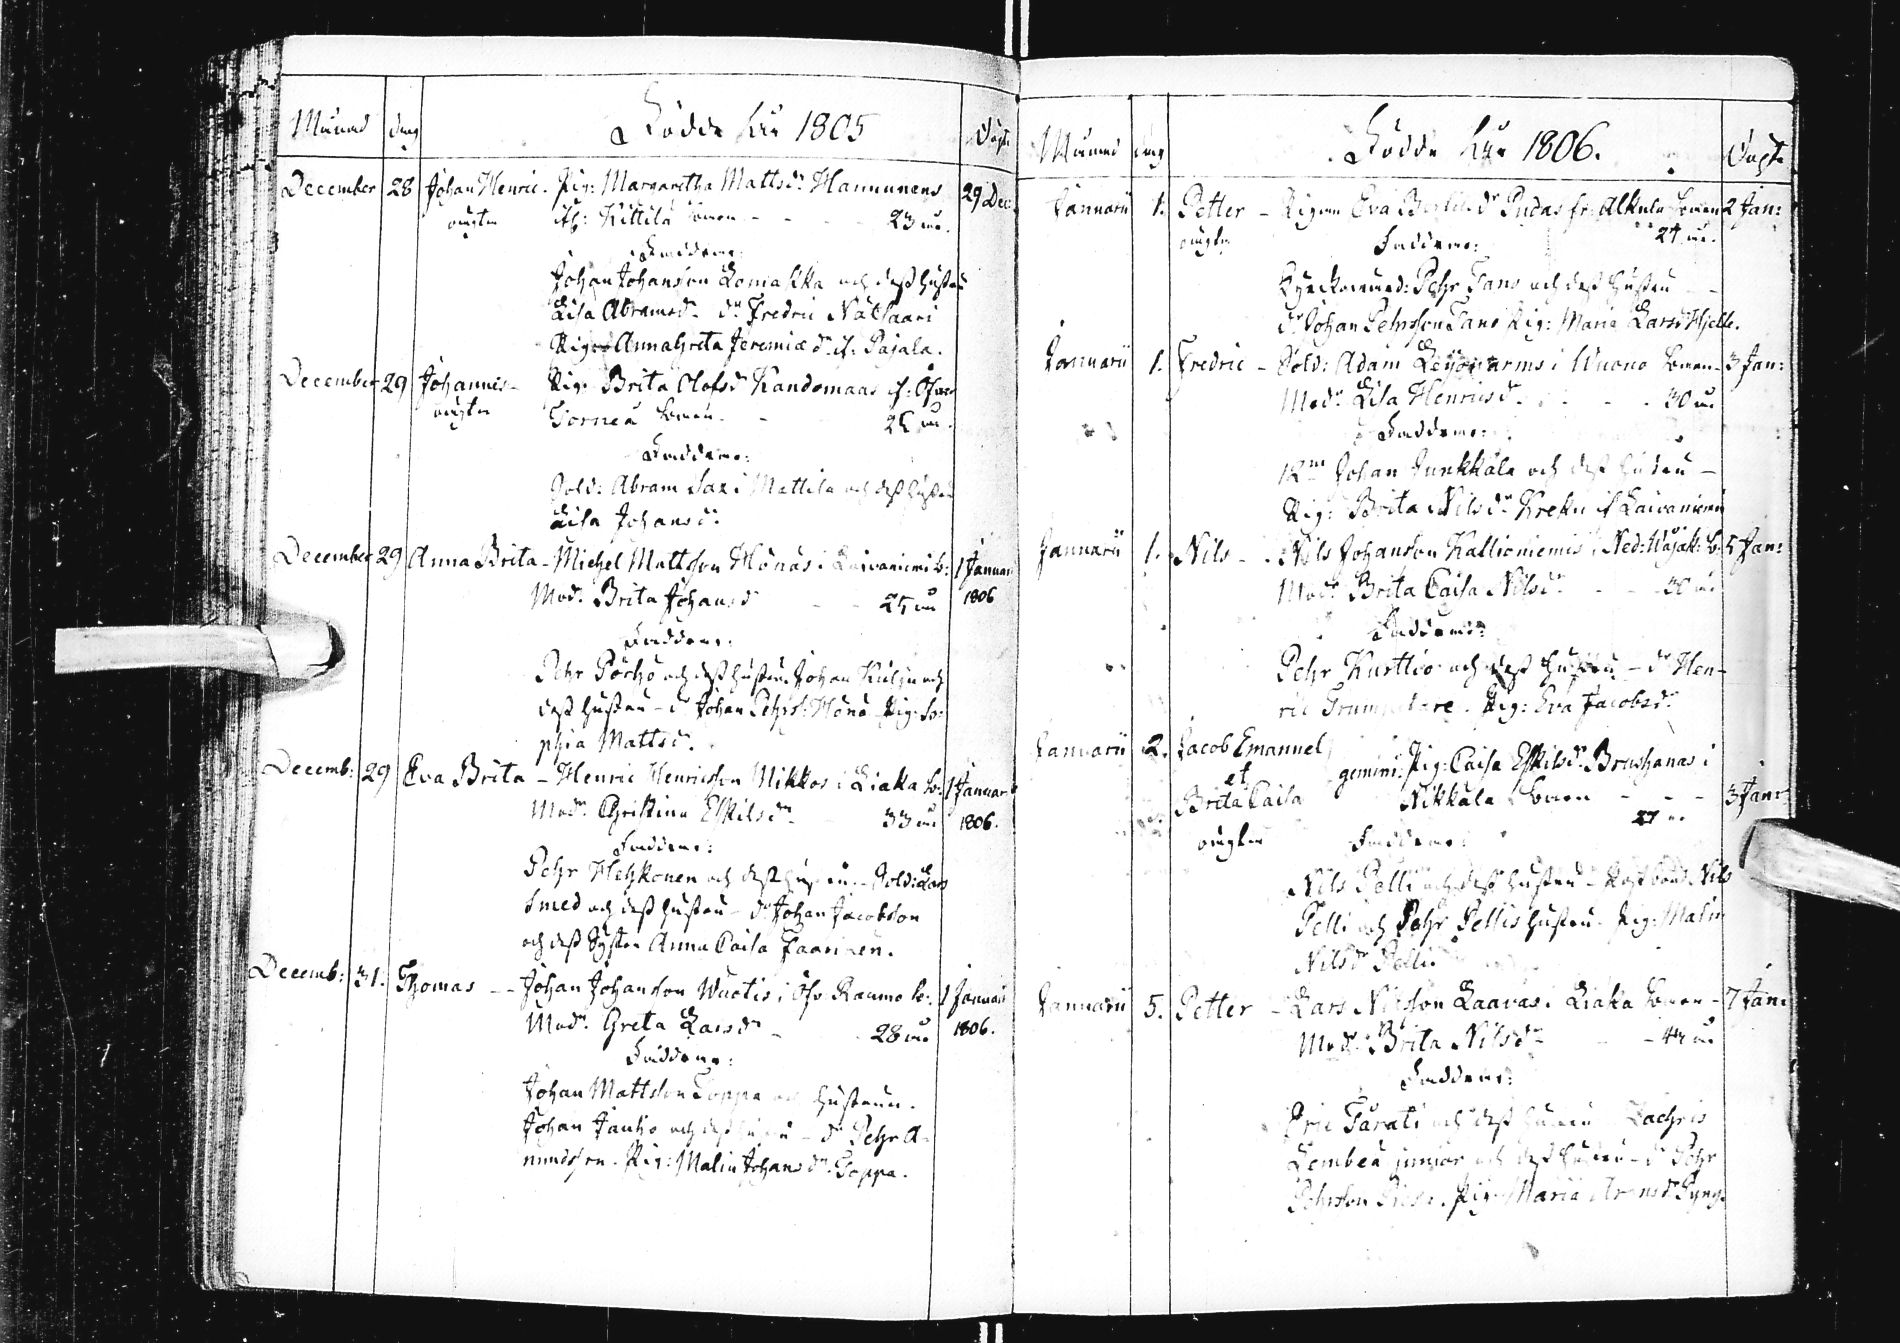 Månad dag Födde år 1805 Döpt
December 28 Johan Henric. Pig: Margaretha Mattsdr Hannunens 29 Dec:
oägta if: Kittilä Socken - - - 23 år.
Faddrar:
Johan Johansson Lomakka och dess hustru
Lisa Abramsdr dr Fredric Nätsaari
Pig: Anna Greta Jeremiædr if: Pajala.
December 29 Johannis - Pig: Brita Olofsdr Kandomaas if: Öfver
oägta Torneå Socken - - 25 år.
Faddrar:
Sold: Abram Sax i Mattila och dess hustru
Lisa Johansdr
December 29 Anna Brita - Michel Mattsson Mönäs i Laivaniemi b: 1 Januar
Modr. Brita Johansdr - - 25 år 1806
Faddrar:
Pehr Pörhö och dess hustru. Johan Kulju och
dess hustru - dr Johan Pehrs: Mönä Pig: So-
phia Mattsdr.
Decemb: 29 Eva Brita - Henric Henricsson Mikkos i Liaka b: 1 Januar
Modr. Christina Eskilsdr - 33 år 1806.
Faddrar:
Pehr Hehkonen och dess hustru - Sold: Lars
Smed och dess hustru - dr Johan Jacobsson
och dess Syster Anna Caisa Paarinen.
Decemb: 31. Thomas - - Johan Johansson Wuotis i Öfv. Raumo b: 1 Januari
Modr. Greta Larsdr - 28 år 1806.
Faddrar:
Johan Mattsson Toppa och hustrun.
Johan Jauho och dess hustru - dr Pehr A-
mundsson. Pig: Malin Johansdr Toppa.
Månad dag Födde år 1806. Döpt
Januarii 1. Petter - Pigan Eva dr Pudas fr: Alkula Socken 2 Jan:
oägta 27 år.
Faddrar:
Pehr Fans och dess hustru - -
dr Johan Pehrsson Fans Pig: Maria Larsdr Hjelte.
Januarii 1. Fredric - Sold: Adam Lejonarms i Wuono Socken - 3 Jan:
Modr Lisa Henricsdr - - - 30 år
Faddrar:
Johan Junkkala och dess hustru -
Pig: Brita Nilsdr Kreku if Laivaniemi
Januarii 1. Nils - Nils Johansson Kallioniemis i Ned: Wojak: b: 5 Jan:
Modr Brita Caisa Nilsdr - - 30 år
Faddrar:
Pehr Kurttio och dess hustru - dr Hen-
ric Trumpetare. Pig: Eva Jacobsdr
Januarii 2. Jacob Emanuel
et gemini. Pig: Caisa Eskilsdr Brushanas i
Brita Caisa Nikkala Socken - - - 3 Jan:
oägta 27 år
Faddrar:
Nils Pelli och dess hustru - Nils
Pelli och Pehr Pellis hustru. Pig: Malin
Nilsdr Pelli
Januarii 5. Petter - Lars Nilsson Laavas i Liaka Socken - 7 Jan:
Modr Brita Nilsdr - - 44 år
Faddrar:
Eric Tarati och dess hustru Zachris
Lembea junior och dess hustru - dr Pehr
Pehrsson Pig: Maria